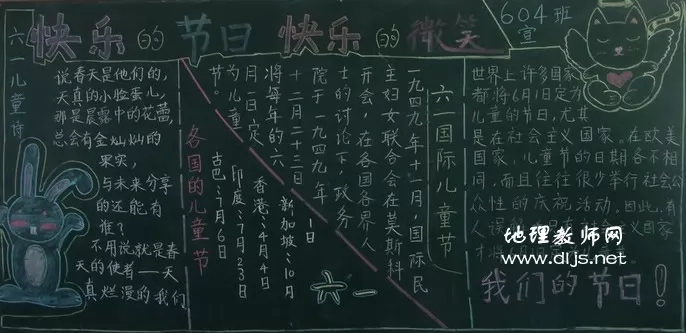 快乐的节日快乐的微笑
604班
宣
六一儿童诗
说春天是他们的,
天真的小脸蛋儿,
那是晨露中的花蕾,
总会有金灿灿的
果实,
与未来分享
的还能有
谁?
不用说就是春
天的使者——天
真烂漫的我们
六一国际儿童节
一九四九年十一月,国际民
主妇女联合会在莫斯科
开会,在各国各界人
士的讨论下,政务
院于一九四九年
十二月二十三日
将每年的六
月一日定
为儿童
节。
各国的儿童节
古巴:7月6日
印度:7月23日
香港:4月4日
新加坡:10月
1日
六一
世界上许多国家
都将6月1日定为
儿童的节日,尤其
是在社会主义国家。在欧美
国家,儿童节的日期各不相
同,而且往往很少举行社会公
众性的庆祝活动。因此,有
人误 社会主义国家
才将
我们的节日!
地理教师网
www.dljs.net